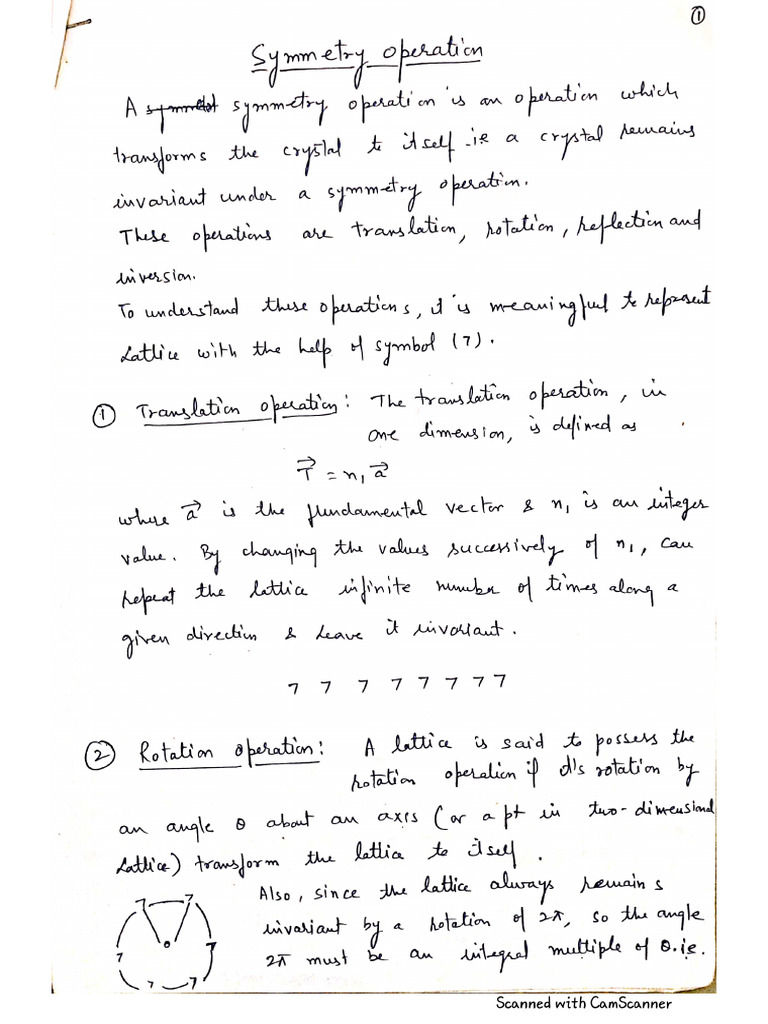 ①
Symmetry operation
A symmetry operation is an operation which
transforms the crystal to itself i.e a crystal remains
invariant under a symmetry operation.
These operations are translation, rotation, reflection and
inversion.
To understand these operations, it is meaningful to represent
Lattice with the help of symbol (7).
① Translation operation: The translation operation, in
one dimension, is defined as
T⃗ = n₁a⃗
where a⃗ is the fundamental vector & n₁ is an integer
value. By changing the values successively of n₁, can
repeat the lattice infinite number of times along a
given direction & leave it invariant.
7 7 7 7 7 7 7 7
② Rotation operation: A lattice is said to possess the
rotation operation if it's rotation by
an angle θ about an axis (or a pt in two-dimensional
Lattice) transform the lattice to itself.
Also, since the lattice always remains
invariant by a rotation of 2π, so the angle
2π must be an integral multiple of θ. i.e.
7 7 7 7 7 7 7
Scanned with CamScanner